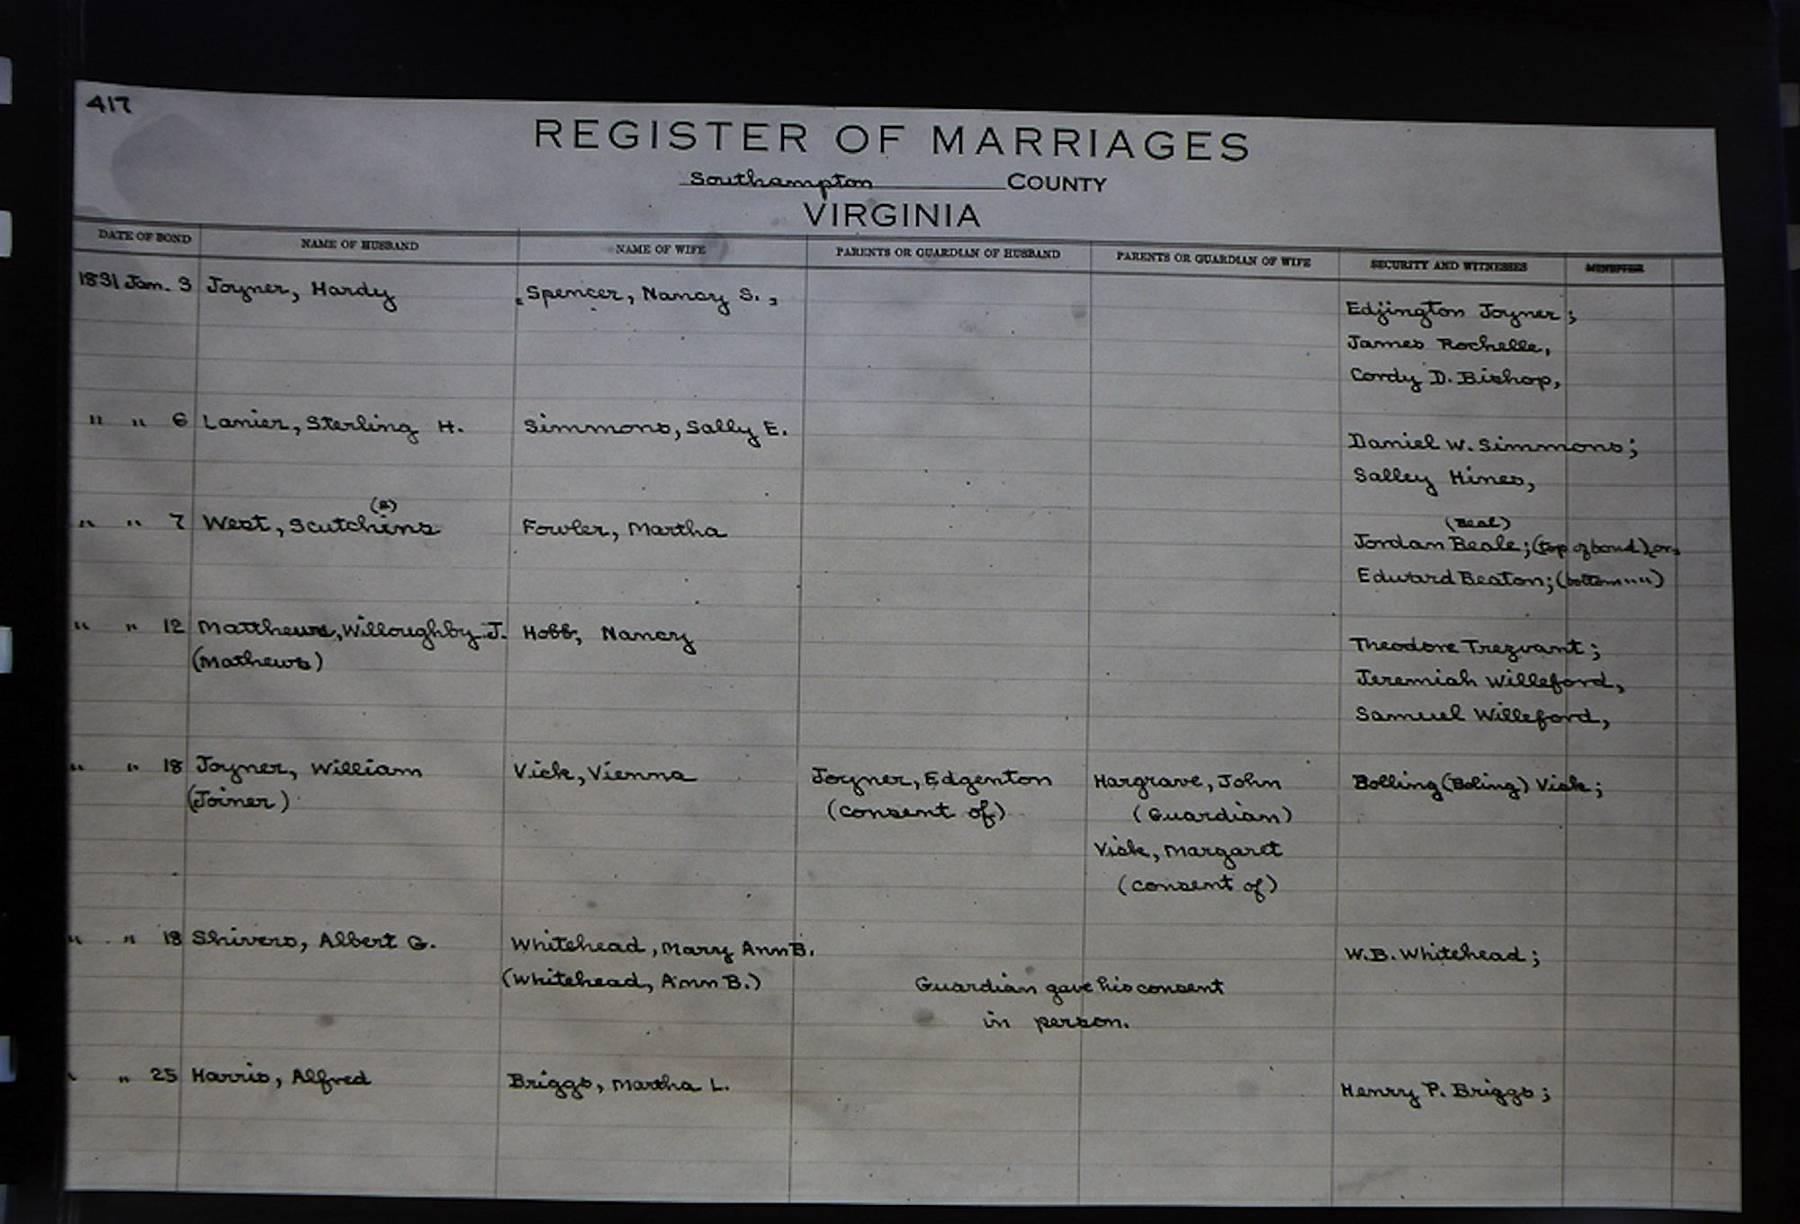 417
REGISTER OF MARRIAGES
Southampton COUNTY
VIRGINIA
DATE OF BOND NAME OF HUSBAND NAME OF WIFE PARENTS OR GUARDIAN OF HUSBAND PARENTS OR GUARDIAN OF WIFE SECURITY AND WITNESSES MINISTER
1831 Jan. 3 Joyner, Hardy Spencer, Nancy S., Edjington Joyner;
James Rochelle,
Cordy D. Bishop,
" " 6 Lanier, Sterling H. Simmons, Sally E. Daniel W. Simmons;
Salley Hines,
(s) (Beal)
" " 7 West, Scutchins Fowler, Martha Jordan Beale; (top of bond) or,
Edward Beaton; (bottom " ")
" " 12 Matthews, Willoughby J. Hobb, Nancy Theodore Trezvant;
(Mathews) Jeremiah Willeford,
Samuel Willeford,
" " 18 Joyner, William Vick, Vienna Joyner, Edgenton Hargrave, John Bolling (Boling) Vick;
(Joiner) (consent of) (Guardian)
Vick, Margaret
(consent of)
" " 18 Shivers, Albert G. Whitehead, Mary Ann B. W.B. Whitehead;
(Whitehead, Ann B.) Guardian gave his consent
in person.
" " 25 Harris, Alfred Briggs, Martha L. Henry P. Briggs;